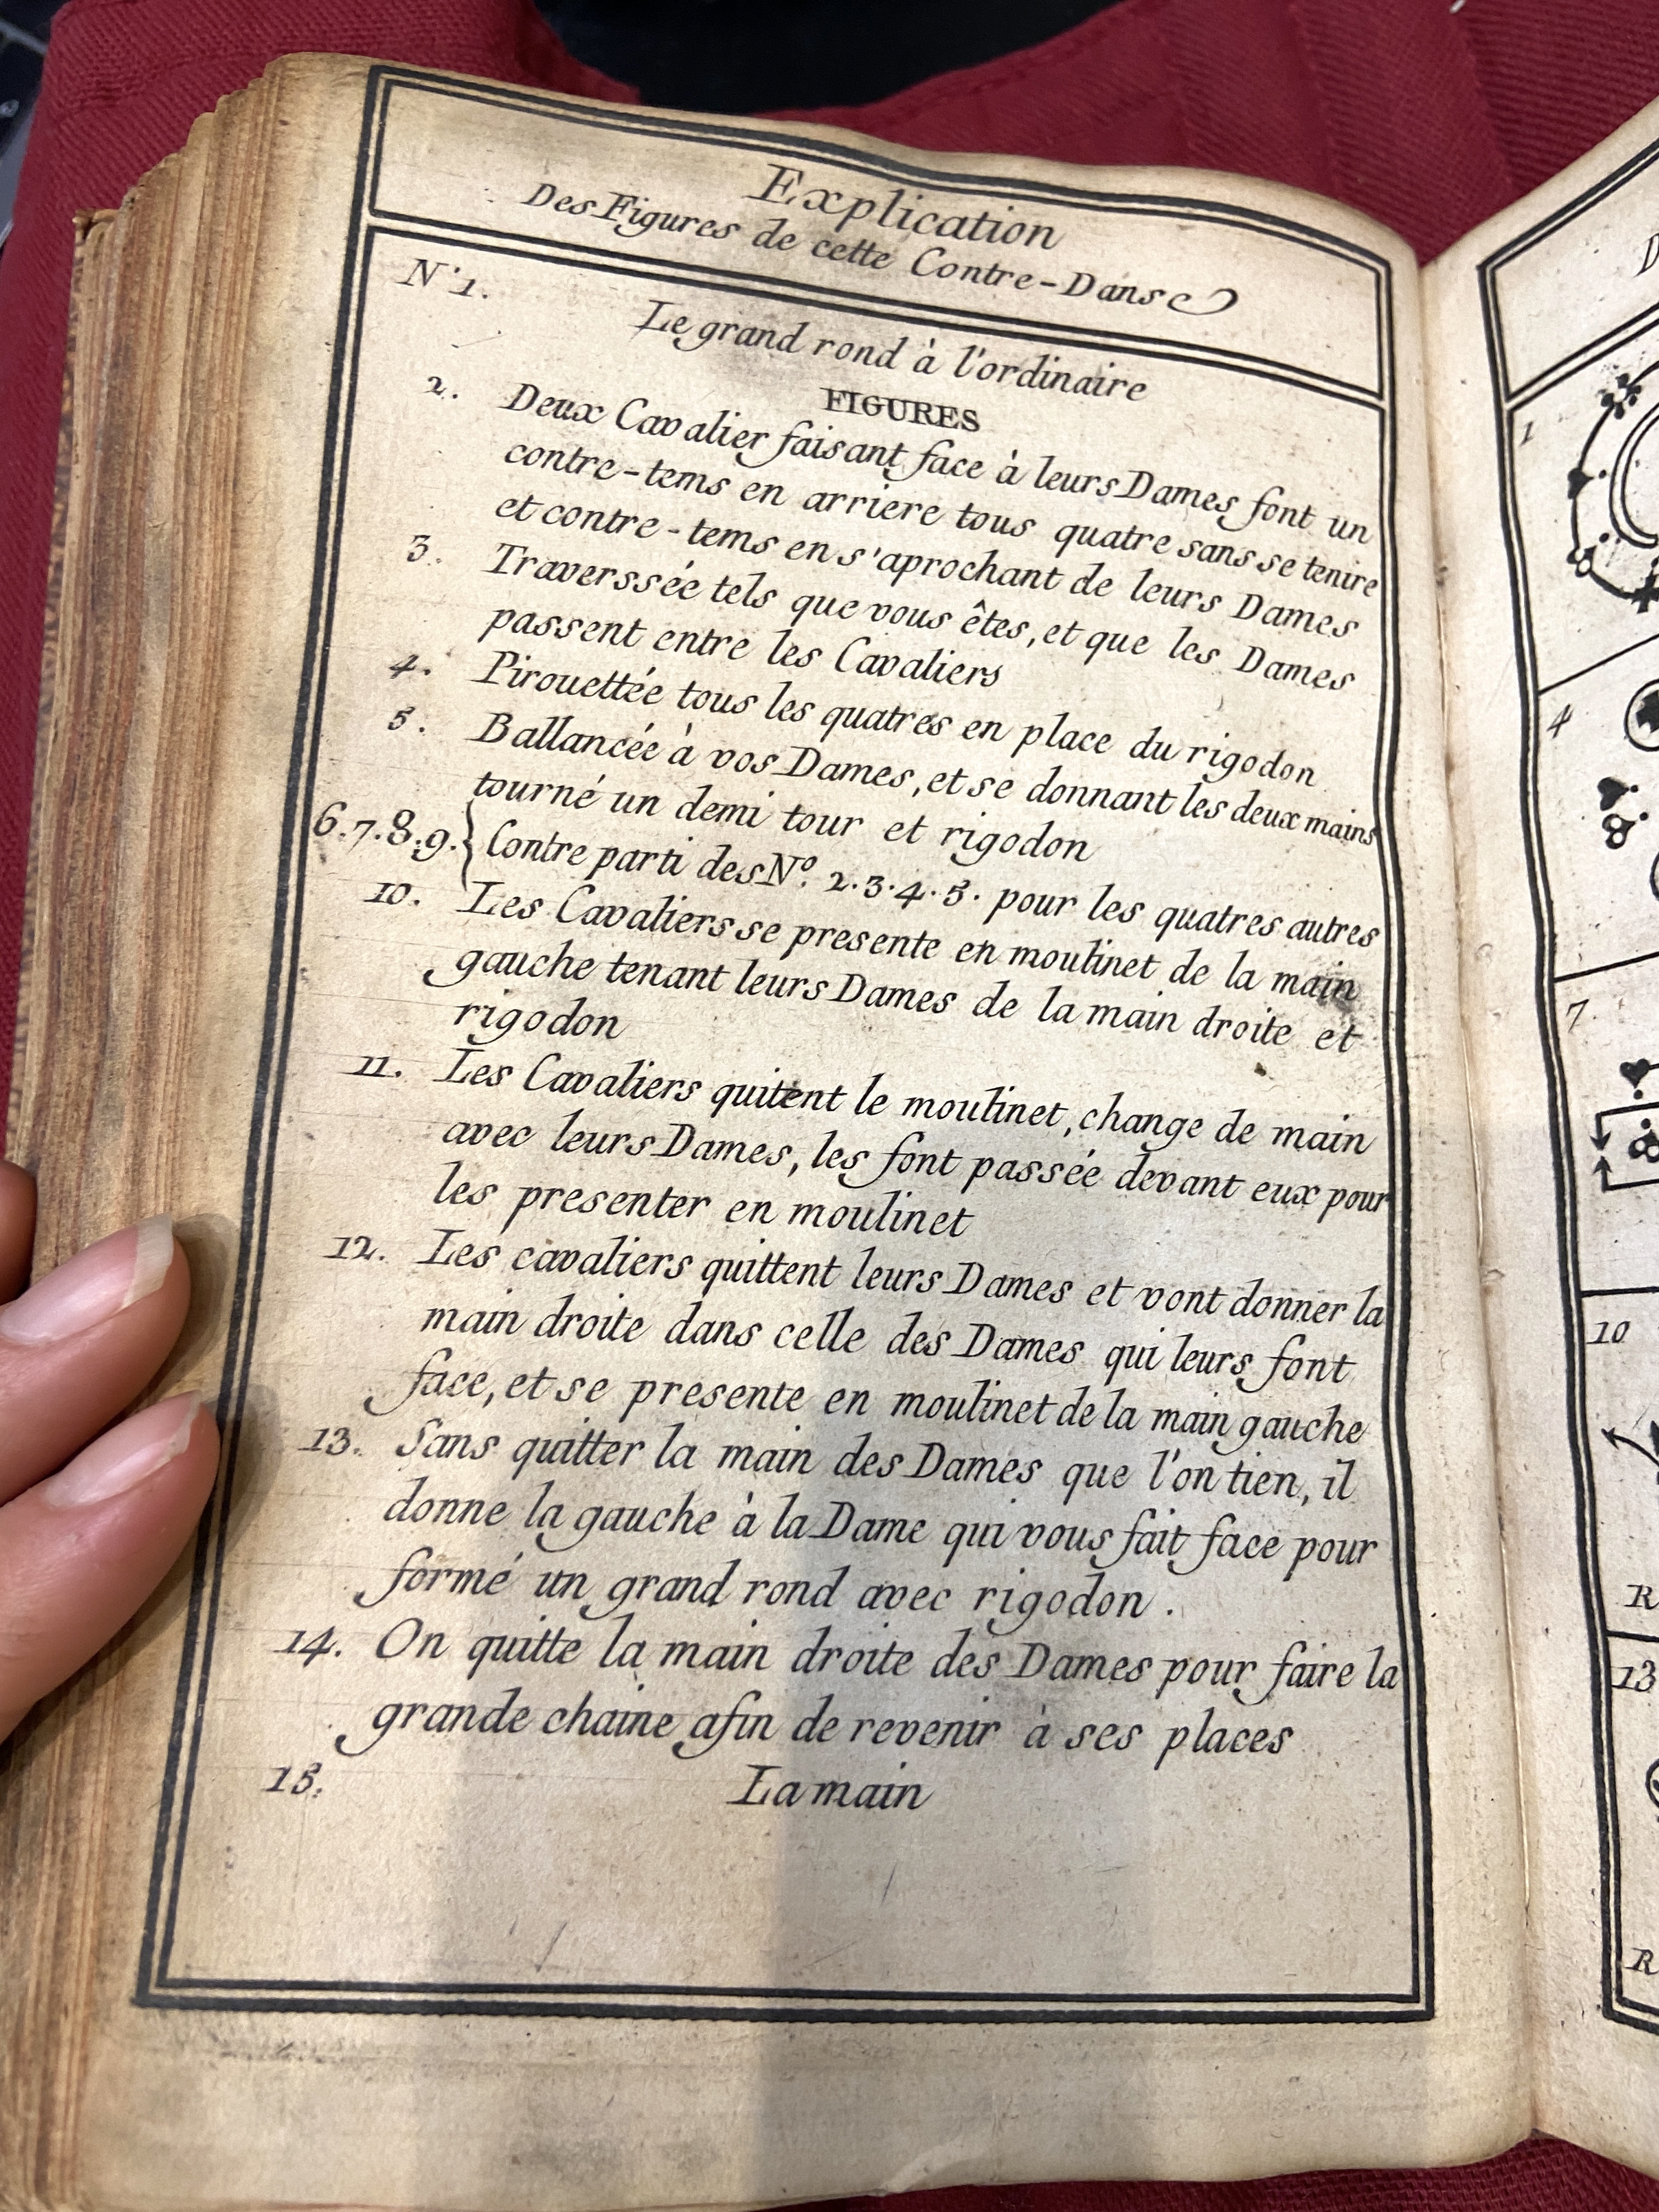 Explication
Des Figures de cette Contre-Danse
N° 1. Le grand rond à l'ordinaire
FIGURES
2. Deux Cavalier faisant face à leurs Dames font un
contre-tems en arriere tous quatre sans se tenire
et contre-tems en s'aprochant de leurs Dames
3. Traverssée tels que vous êtes, et que les Dames
passent entre les Cavaliers
4. Pirouettée tous les quatres en place du rigodon
5. Ballancée à vos Dames, et se donnant les deux mains
tourné un demi tour et rigodon
6.7.8.9. { Contre parti des N.º 2.3.4.5. pour les quatres autres
10. Les Cavaliers se presente en moulinet de la main
gauche tenant leurs Dames de la main droite et
rigodon
11. Les Cavaliers quitent le moulinet, change de main
avec leurs Dames, les font passée devant eux pour
les presenter en moulinet
12. Les cavaliers quittent leurs Dames et vont donner la
main droite dans celle des Dames qui leurs font
face, et se presente en moulinet de la main gauche
13. Sans quitter la main des Dames que l'on tien, il
donne la gauche à la Dame qui vous fait face pour
formé un grand rond avec rigodon.
14. On quitte la main droite des Dames pour faire la
grande chaine afin de revenir à ses places
15. La main
D
1
4
7
10
R
13
R